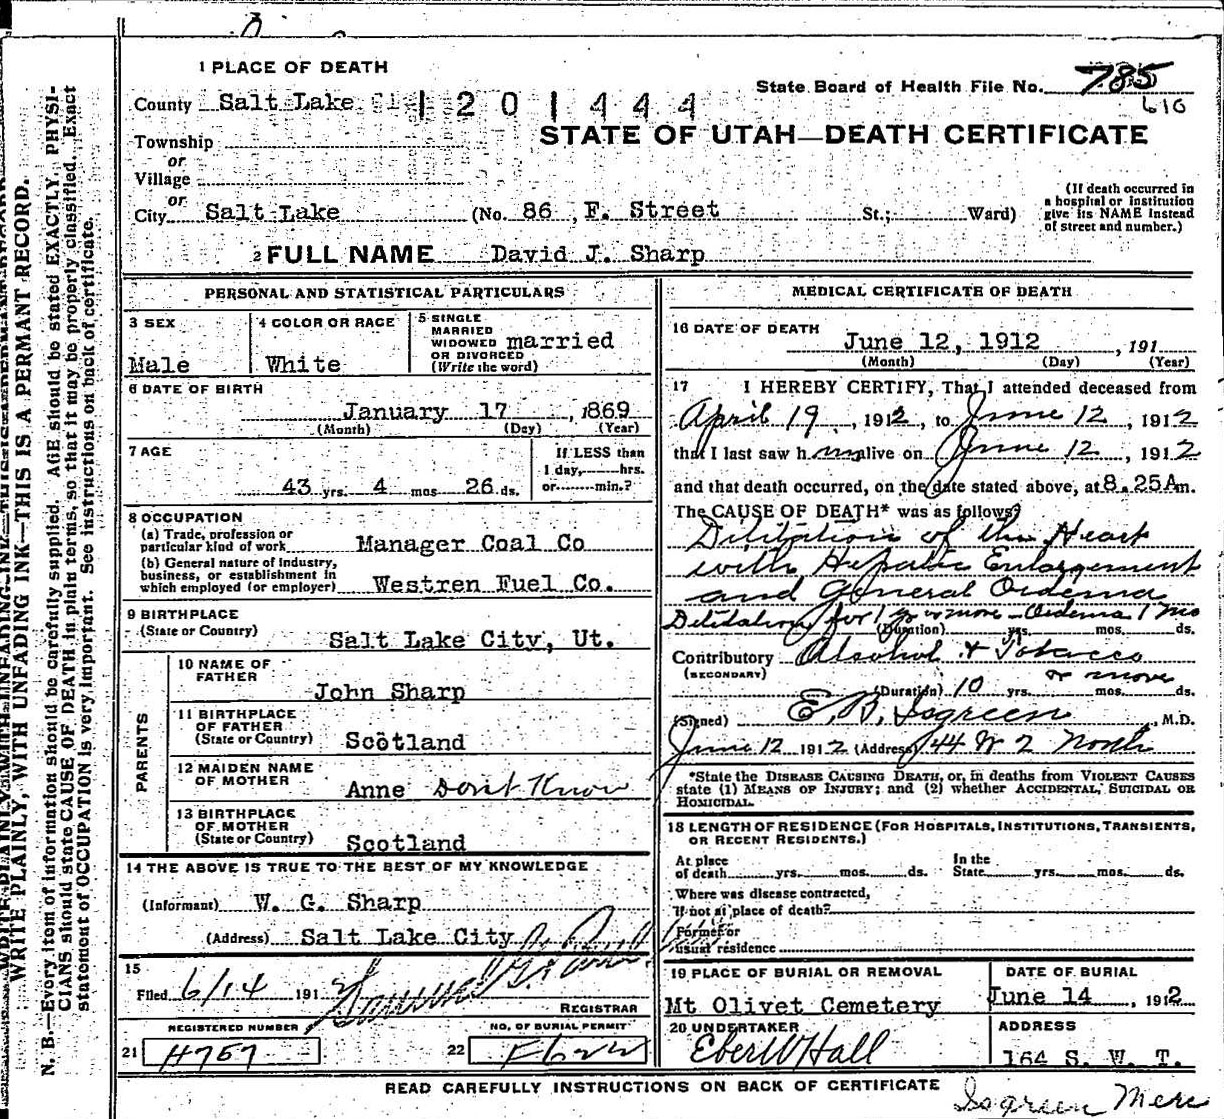 1 PLACE OF DEATH
County Salt Lake 1 2 0 1 4 4 4
State Board of Health File No. 785
610
STATE OF UTAH—DEATH CERTIFICATE
Township
or
Village
or
City Salt Lake (No. 86 , F. Street St.; Ward)
(If death occurred in a hospital or institution give its NAME instead of street and number.)
2 FULL NAME David J. Sharp
PERSONAL AND STATISTICAL PARTICULARS
3 SEX
Male
4 COLOR OR RACE
White
5 SINGLE
MARRIED
WIDOWED
OR DIVORCED
(Write the word)
married
6 DATE OF BIRTH
January 17 , 1869
(Month) (Day) (Year)
7 AGE
43 yrs. 4 mos 26 ds.
If LESS than
1 day, hrs.
or min.?
8 OCCUPATION
(a) Trade, profession or
particular kind of work Manager Coal Co
(b) General nature of industry,
business, or establishment in
which employed (or employer) Westren Fuel Co.
9 BIRTHPLACE
(State or Country) Salt Lake City, Ut.
PARENTS
10 NAME OF
FATHER
John Sharp
11 BIRTHPLACE
OF FATHER
(State or Country) Scotland
12 MAIDEN NAME
OF MOTHER Anne Dont Know
13 BIRTHPLACE
OF MOTHER
(State or Country) Scotland
14 THE ABOVE IS TRUE TO THE BEST OF MY KNOWLEDGE
(Informant) W. G. Sharp
(Address) Salt Lake City
15
Filed 6/14 191 2
REGISTRAR
REGISTERED NUMBER
21 H757
NO. OF BURIAL PERMIT
22
MEDICAL CERTIFICATE OF DEATH
16 DATE OF DEATH
June 12, 1912 , 191
(Month) (Day) (Year)
17 I HEREBY CERTIFY, That I attended deceased from
April 19 , 1912, to June 12 , 1912
that I last saw h im alive on June 12 , 1912
and that death occurred, on the date stated above, at 8.25A m.
The CAUSE OF DEATH* was as follows:
Dilitation of the Heart
with Hepatic Enlargement
and General Oedema
Dilitation for 1 yr or more - Oedema 1 mo
(Duration) yrs. mos. ds.
Contributory Alcohol & Tobacco
(SECONDARY) or more
(Duration) 10 yrs. mos. ds.
(Signed) E. B. Isgreen , M.D.
June 12 1912 (Address) 44 W 2 North
*State the DISEASE CAUSING DEATH, or, in deaths from VIOLENT CAUSES
state (1) MEANS OF INJURY; and (2) whether ACCIDENTAL, SUICIDAL OR
HOMICIDAL.
18 LENGTH OF RESIDENCE (FOR HOSPITALS, INSTITUTIONS, TRANSIENTS,
OR RECENT RESIDENTS.)
At place
of death yrs. mos. ds.
In the
State yrs. mos. ds.
Where was disease contracted,
if not at place of death?
Former or
usual residence
19 PLACE OF BURIAL OR REMOVAL
Mt Olivet Cemetery
DATE OF BURIAL
June 14 , 1912
20 UNDERTAKER
Eber W Hall
ADDRESS
164 S. W. T.
READ CAREFULLY INSTRUCTIONS ON BACK OF CERTIFICATE
Isgreen
WRITE PLAINLY, WITH UNFADING INK—THIS IS A PERMANT RECORD.
N. B.—Every item of information should be carefully supplied. AGE should be stated EXACTLY. PHYSI-
CIANS should state CAUSE OF DEATH in plain terms, so that it may be properly classified. Exact
statement of OCCUPATION is very important. See instructions on back of certificate.